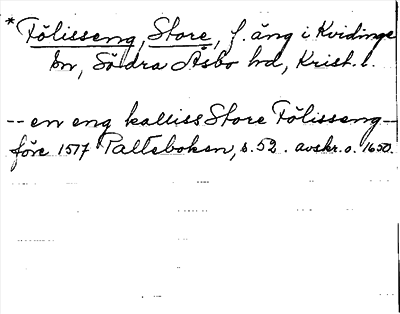 *Tölisseng, Store, f. äng i Kvidinge
sn, Södra Åsbo hd, Krist. l.
-- en eng kalliss Store Tölisseng --
före 1517 Palteboken, s. 52. avskr. o. 1650.